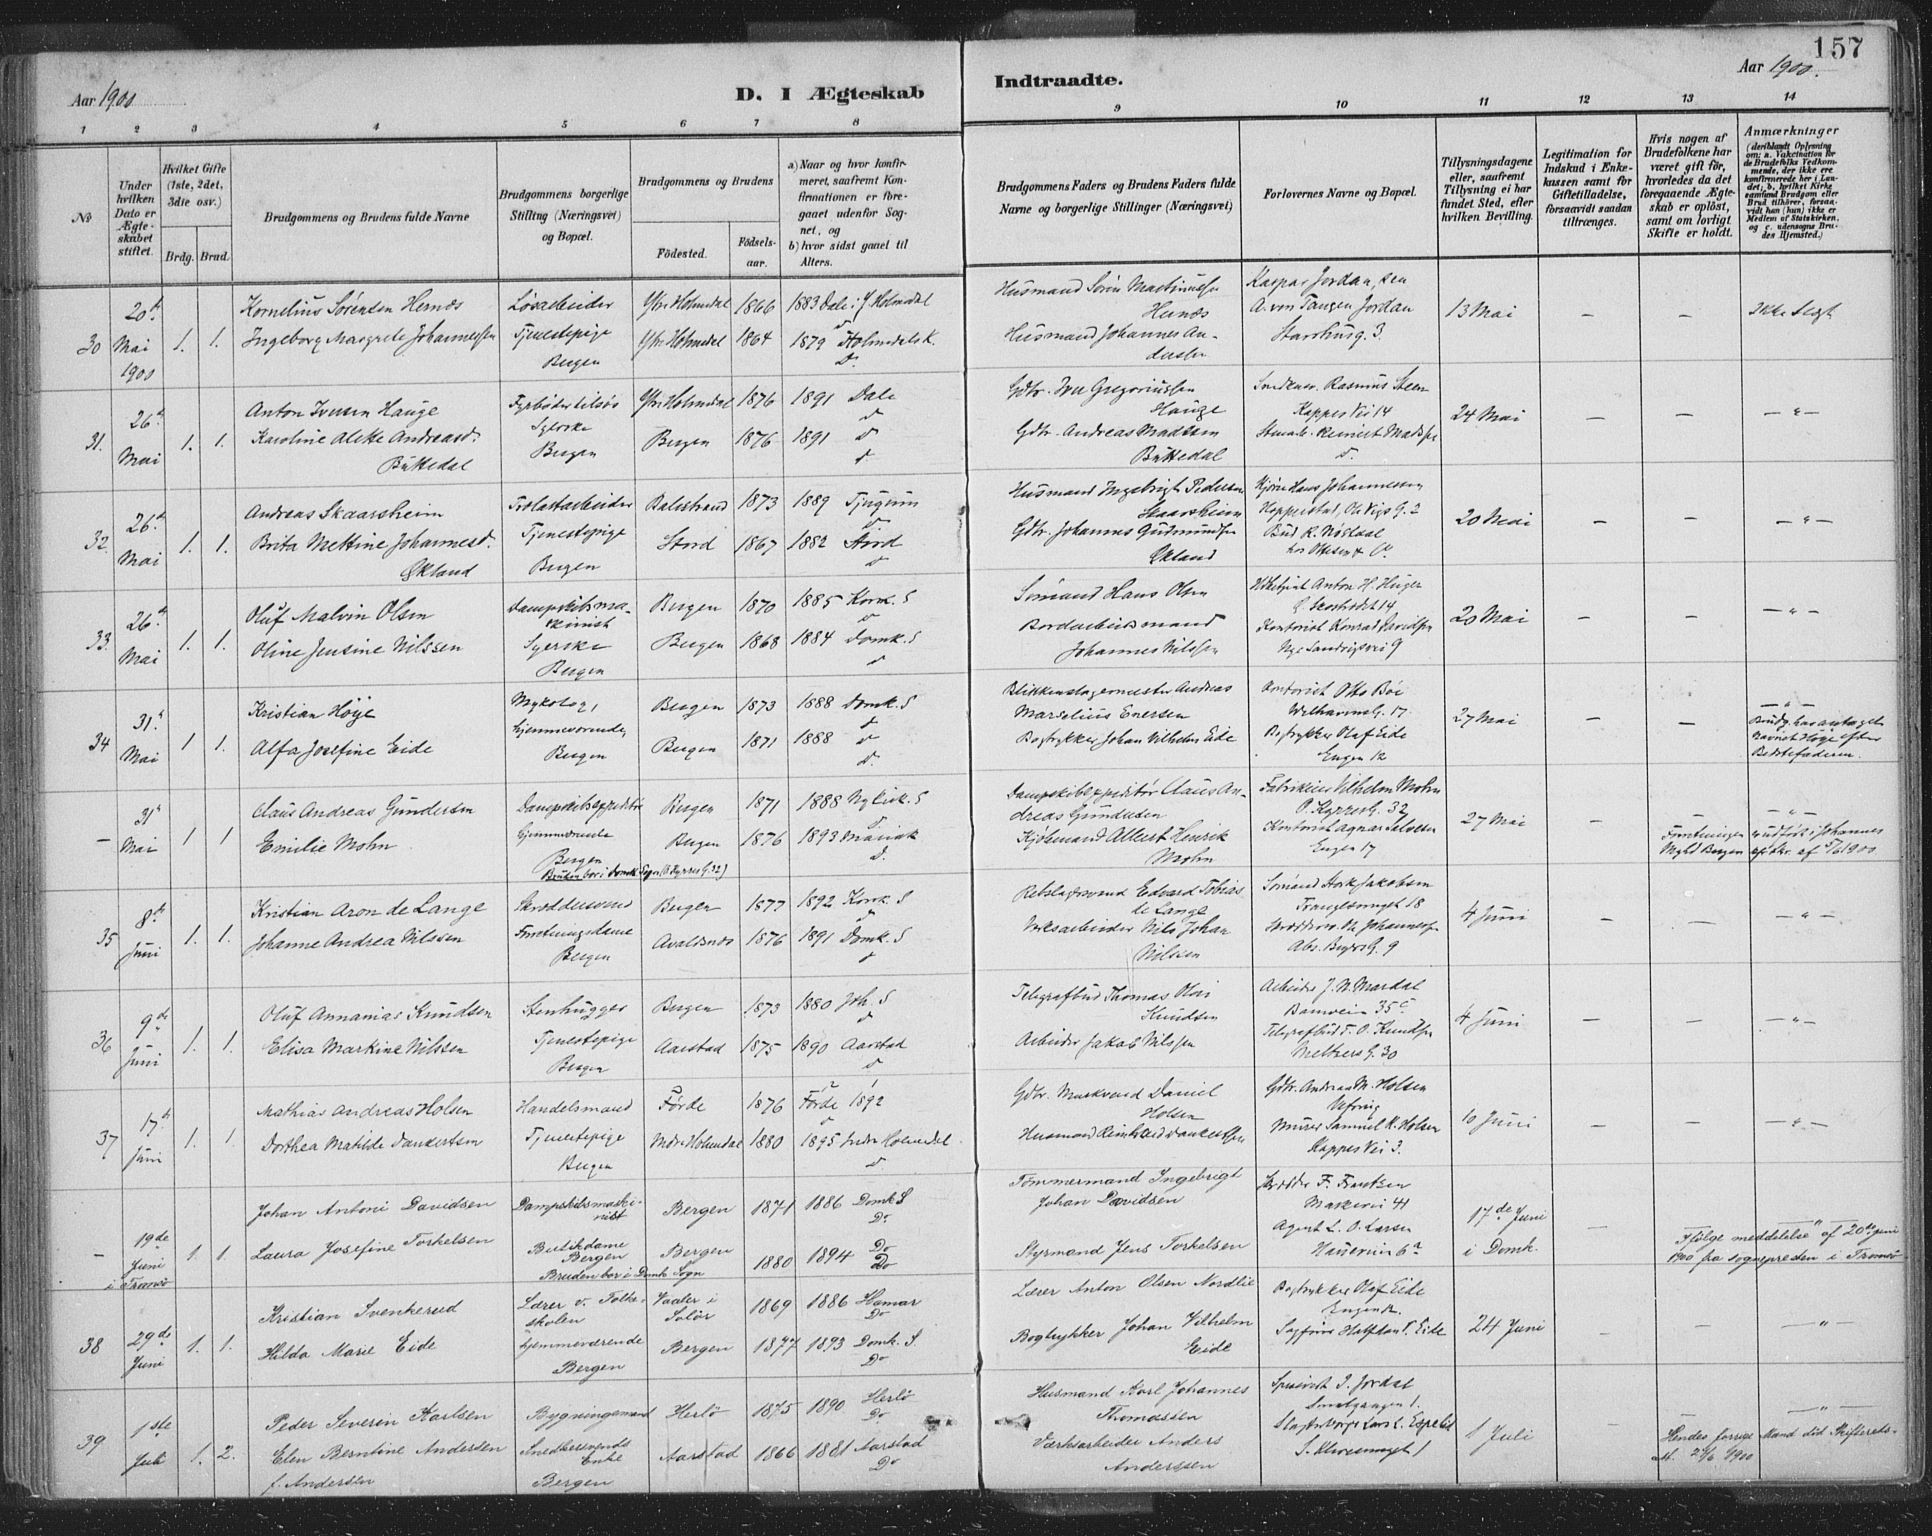 157
Aar 1900
D. I Ægteskab
Indtraadte.
Aar 1900.
1 2 3 4 5 6 7 8 9 10 11 12 13 14
No
Under hvilken Dato er Ægteskabet stiftet.
Hvilket Gifte (1ste, 2det, 3die osv.)
Brdg. Brud.
Brudgommens og Brudens fulde Navne
Brudgommens borgerlige Stilling (Næringsvei) og Bopæl.
Brudgommens og Brudens
Födested.
Födselsaar.
a) Naar og hvor konfirmeret, saafremt Konfirmationen er foregaaet udenfor Sognet, og
b) hvor sidst gaaet til Alters.
Brudgommens Faders og Brudens Faders fulde Navne og borgerlige Stillinger (Næringsvei)
Forlovernes Navne og Bopæl.
Tillysningsdagene eller, saafremt Tillysning ei har fundet Sted, efter hvilken Bevilling.
Legitimation for Indskud i Enkekassen samt for Giftetilladelse, forsaavidt saadan tiltrænges.
Hvis nogen af Brudefolkene har været gift før, hvorledes da det foregaaende Ægteskab er opløst, samt om lovligt Skifte er holdt.
Anmærkninger
(deriblandt Oplysning om: a. Vakcination for de Brudefolks Vedkommende, der ikke ere konfirmerede her i Landet; b. hvilket Kirkesamfund Brudgom eller Brud tilhører, forsaavidt han (hun) ikke er Medlem af Statskirken, og c. udensogns Brudes Hjemsted.)
30 20de Mai 1900 1. 1.
Kornelius Sörensen Hernæs Løsarbeider Ytre Holmedal 1866 1883 Dale i Y. Holmedal
Husmand Sören Martinusen Hernæs
Kaspar Jordan, sen
A. von Tangen Jordan
13 Mai — — Ikke Slegt
Ingeborg Margrete Johannessen Tjenestepige Bergen Ytre Holmedal 1864 1879 Holmedals K. Do
Husmand Johannes Andersen
31. 26de Mai 1. 1.
Anton Iversen Hauge Ytre Holmedal 1876 1891 Dale
Gdbr. Iver Gregoriussen Hauge
Rasmus Steen
Kappes Vei 14
24 Mai — — — " —
Karoline Alette Andreasd. Büttedal Syerske Bergen Bergen 1876 1891 Do
Gdbr. Andreas Madssen Büttedal
32. 26de Mai 1. 1.
Andreas Skaarsheim Balestrand 1873 1889 Tjugum
Husmand Ingebrigt Pedersen Skaarsheim
Hans Johannessen
20 Mai — — — " —
Brita Mettine Johannesd. Økland Tjenestepige Bergen Stord 1867 1882 Stord
Gdbr. Johannes Gudmundsen Økland
33. 26de Mai 1. 1.
Oluf Malvin Olsen Dampskibsmaskinist Bergen 1870 1885 Korsk. S
Sömand Hans Olsen
Anton H. Huger
20 Mai — — — " —
Oline Jensine Nilssen Syerske Bergen Bergen 1868 1884 Domk. S
Bordarbeidsmand Johannes Nilssen
Kontorist Konrad Davidsen
Nye Sandvigsvei 9
34 31te Mai 1 1.
Kristian Höye Mykolog, Bergen 1873 1888 Domk. S
Blikkenslagermester Andreas Marselius Enersen
Kontorist Otto Böe
Welhavensg. 17
27 Mai — — — " —
Brudg. har antaget Navnet Höye efter Bedstefaderen.
Alfa Josefine Eide hjemmeværende, Bergen Bergen 1871 1888 Do
Bogtrykker Johan Vilhelm Eide
Bogtrykker Olaf Eide
Engen 12
— 31te Mai 1 1
Claus Andreas Gundersen Dampskibsexpeditör Bergen 1871 1888 Nykirk. S
Dampskibsexpeditör Claus Andreas Gundersen
Fabrikeier Vilhelm Mohn
O. Kyrres G. 32
27 Mai — — — " —
Emilie Mohn hjemmeværende Bergen Bergen 1876 1893 Mariak
Bruden bor i Domk. Sogn (O. Kyrres G. 32)
Kjöbmand Albert Henrik Mohn
Kontorist Agnar Halvorsen
Engen 17
Forretningen udført i Johannes
Mgld Bergen af 5/6 1900
35 8de Juni 1. 1.
Kristian Aron de Lange Skræddersvend Bergen 1877 1892 Korsk. S
Rebslagersvend Edvard Tobias de Lange
Sömand Stork Jakobsen
Trangesmuget 18
4 Juni — — — " —
Johanne Andrea Nilssen Forretningsdame Bergen Avaldsnæs 1876 1891 Domk. S
Verksarbeider Nils Johan Nilssen
Johannessen
36 9de Juni 1. 1.
Oluf Annanias Knudsen Stenhugger Bergen 1873 1880 Joh. S
Telegrafbud Thomas Olai Knudsen
Arbeider J. N. Mardal
Damvein 35c
4 Juni — — — " —
Elisa Markine Nilssen Tjenestepige Bergen Aarstad 1875 1890 Aarstad
Arbeider Jakob Nilssen
Telegrafbud T. O. Knudsen
Meltzers G. 30
37 17de Juni 1. 1.
Mathias Andreas Holsen Handelsmand Förde 1876 Förde 1892
Gdbr. Markvard Daniel Holsen
Gdbr. Andreas M. Holsen
10 Juni — — — " —
Dorthea Matilde Dankertsen Tjenestepige Bergen Indre Holmedal 1880 1895 Indre Holmedal
Husmand Reinhard Dankertsen
Murer Samuel K. Holsen
Kappes Vei 3.
— 19de Juni i Tromsö 1. 1.
Johan Antoni Davidsen Dampskibsmaskinist Bergen 1871 1886 Domk S Do
Tömmermand Ingebrigt Johan Davidsen
F. Frantzen
Markevei 41
17de Juni i Domk. —
Laura Josefine Torkelsen Butikdame Bergen Bergen 1880 1894 Do Do
Bruden bor i Domk. Sogn
Styrmand Jens Torkelsen
Agent L. O. Larsen
Haugevein 6a
Ifölge meddelelse af 20de juni 1900 fra sognepresten i Tromsö
38 29de Juni 1. 1.
Kristian Svenkerud Lærer v. Folkeskolen Vaaler i Solör 1869 1886 Hamar Do
Lærer Anton Olsen Nordlie
Bogtrykker Olaf Eide
Engen 12.
24 Juni — — — " —
Hilda Marie Eide hjemmeværende Bergen Bergen 1877 1893 Domk. S. Do
Bogtrykker Johan Vilhelm Eide
Halfdan V. Eide
39 1ste Juli 1. 2.
Peder Severin Karlsen Bygningsmand Herlö 1875 1890 Herlö Do
Husmand Karl Johannes Thomassen
J. Jordal
1 Juli — — " —
Elen Berntine Andersen f. Anderssen Snedkersvends Enke Bergen Aarstad 1866 1881 Aarstad Do
Værksarbeider Anders Anderssen
Lars L. Espelid
Hendes forrige Mand död Skifteretsat. 21/6 1900